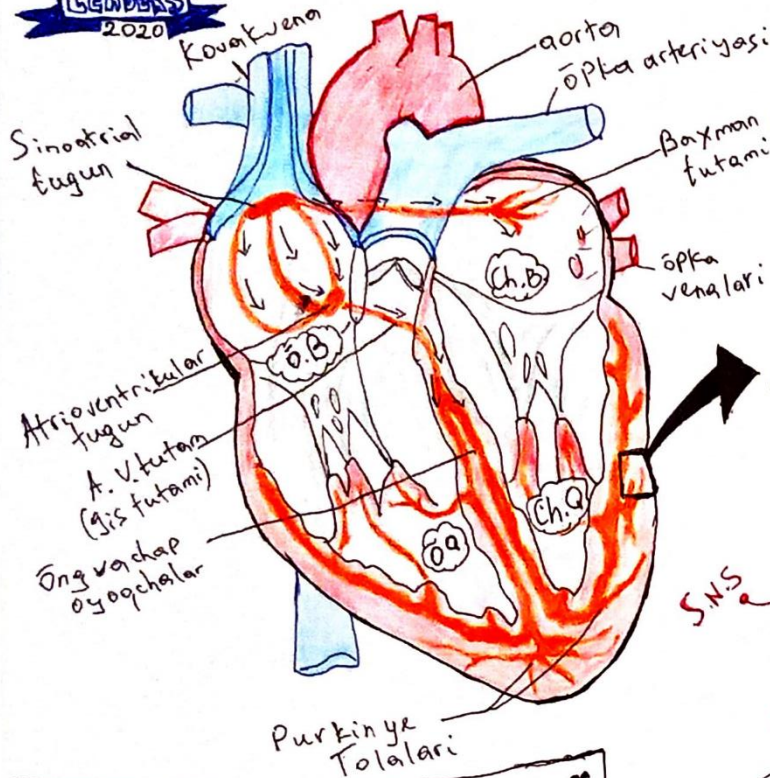 LEADERS
2020
Kovak vena
aorta
ōpka arteriyasi
Sinoatrial
tugun
Baxman
tutami
Ch.B
ōpka
venalari
Ō.B
Atrioventrikular
tugun
A.V. tutam
(gis tutami)
Ch.Q
ŌQ
Ōng va chap
oyoqchalar
S.N.S
Purkinye
Tolalari